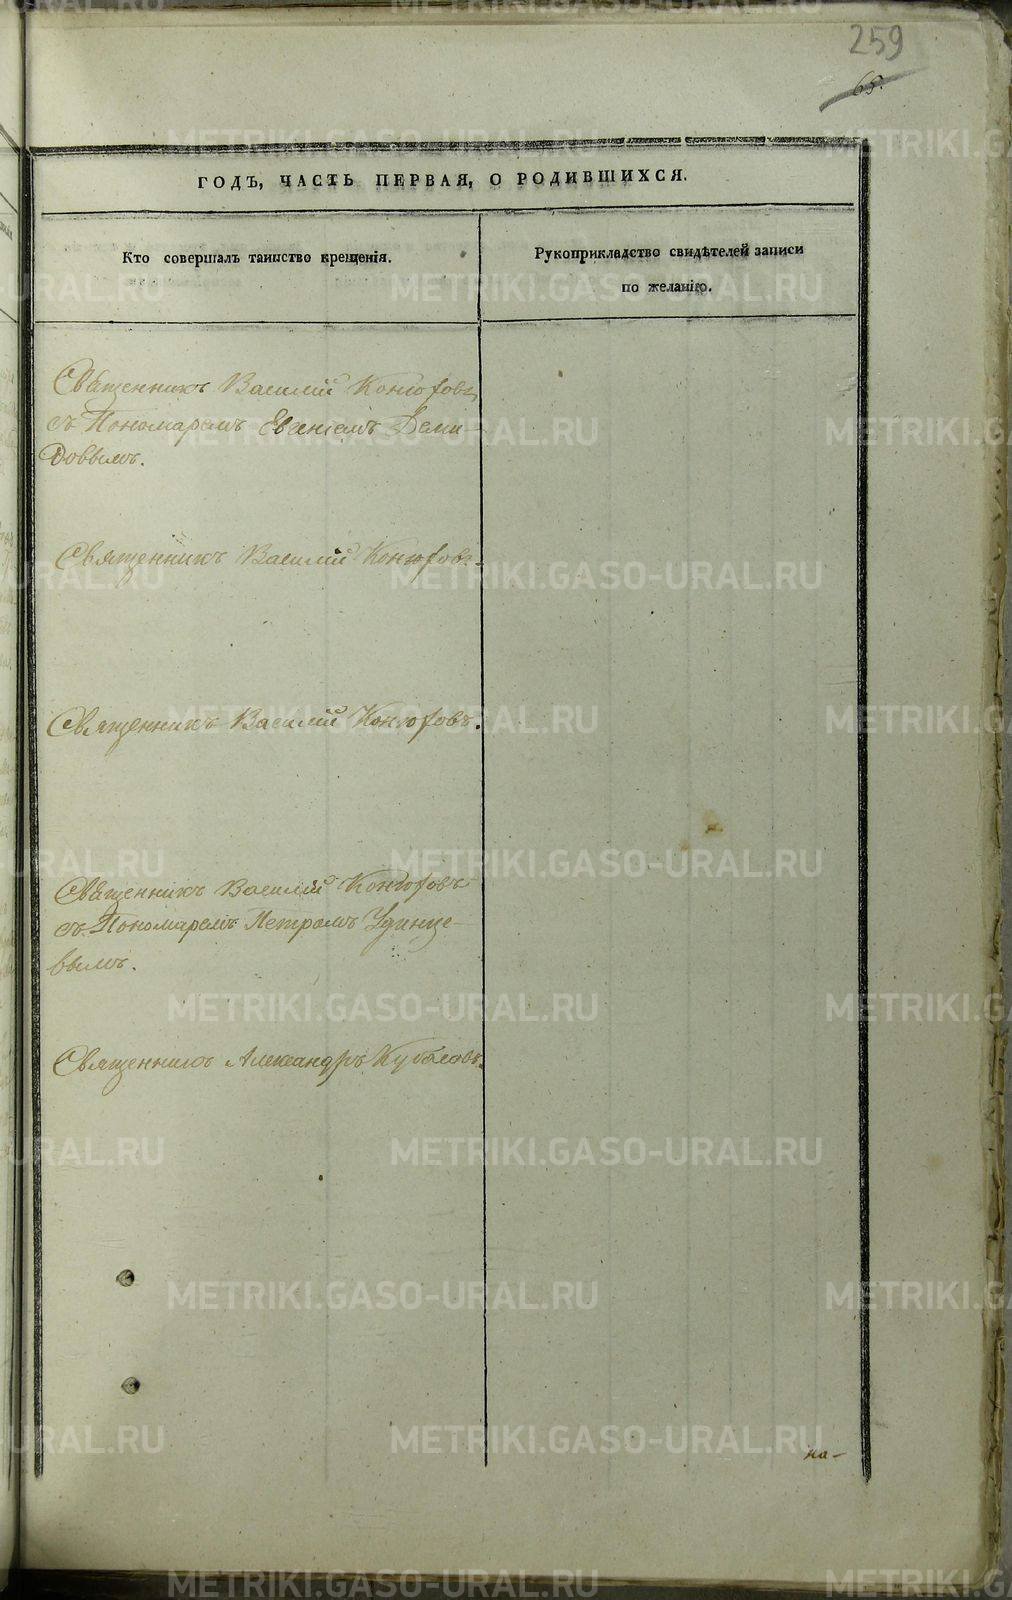 259
65.
ГОДЪ, ЧАСТЬ ПЕРВАЯ, О РОДИВШИХСЯ.
Кто совершалъ таинство крещенія.
Рукоприкладство свидѣтелей записи
по желанію.
Священникъ Василій Конюховъ
съ Пономаремъ Евгеніемъ Деми-
довымъ.
Священникъ Василій Конюховъ.
Священникъ Василій Конюховъ.
Священникъ Василій Конюховъ
съ Пономаремъ Петромъ Удинце-
вымъ.
Священникъ Александръ
на-
METRIKI.GASO-URAL.RU